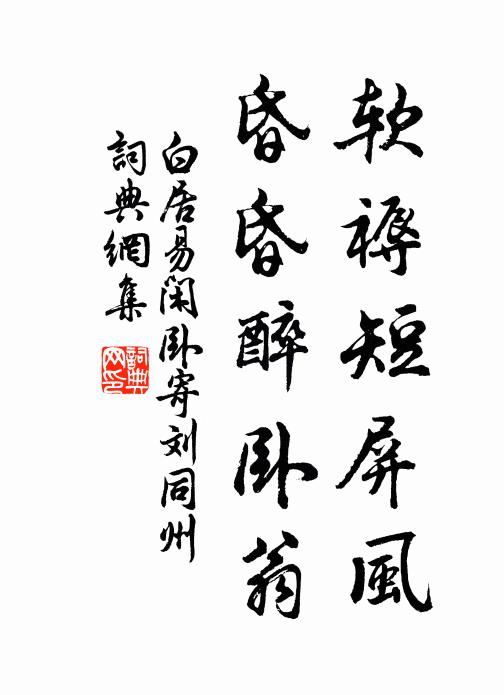 软褥短屏風
昏昏醉卧翁
白居易闲卧寄刘同州
詞典網集
詞典网印